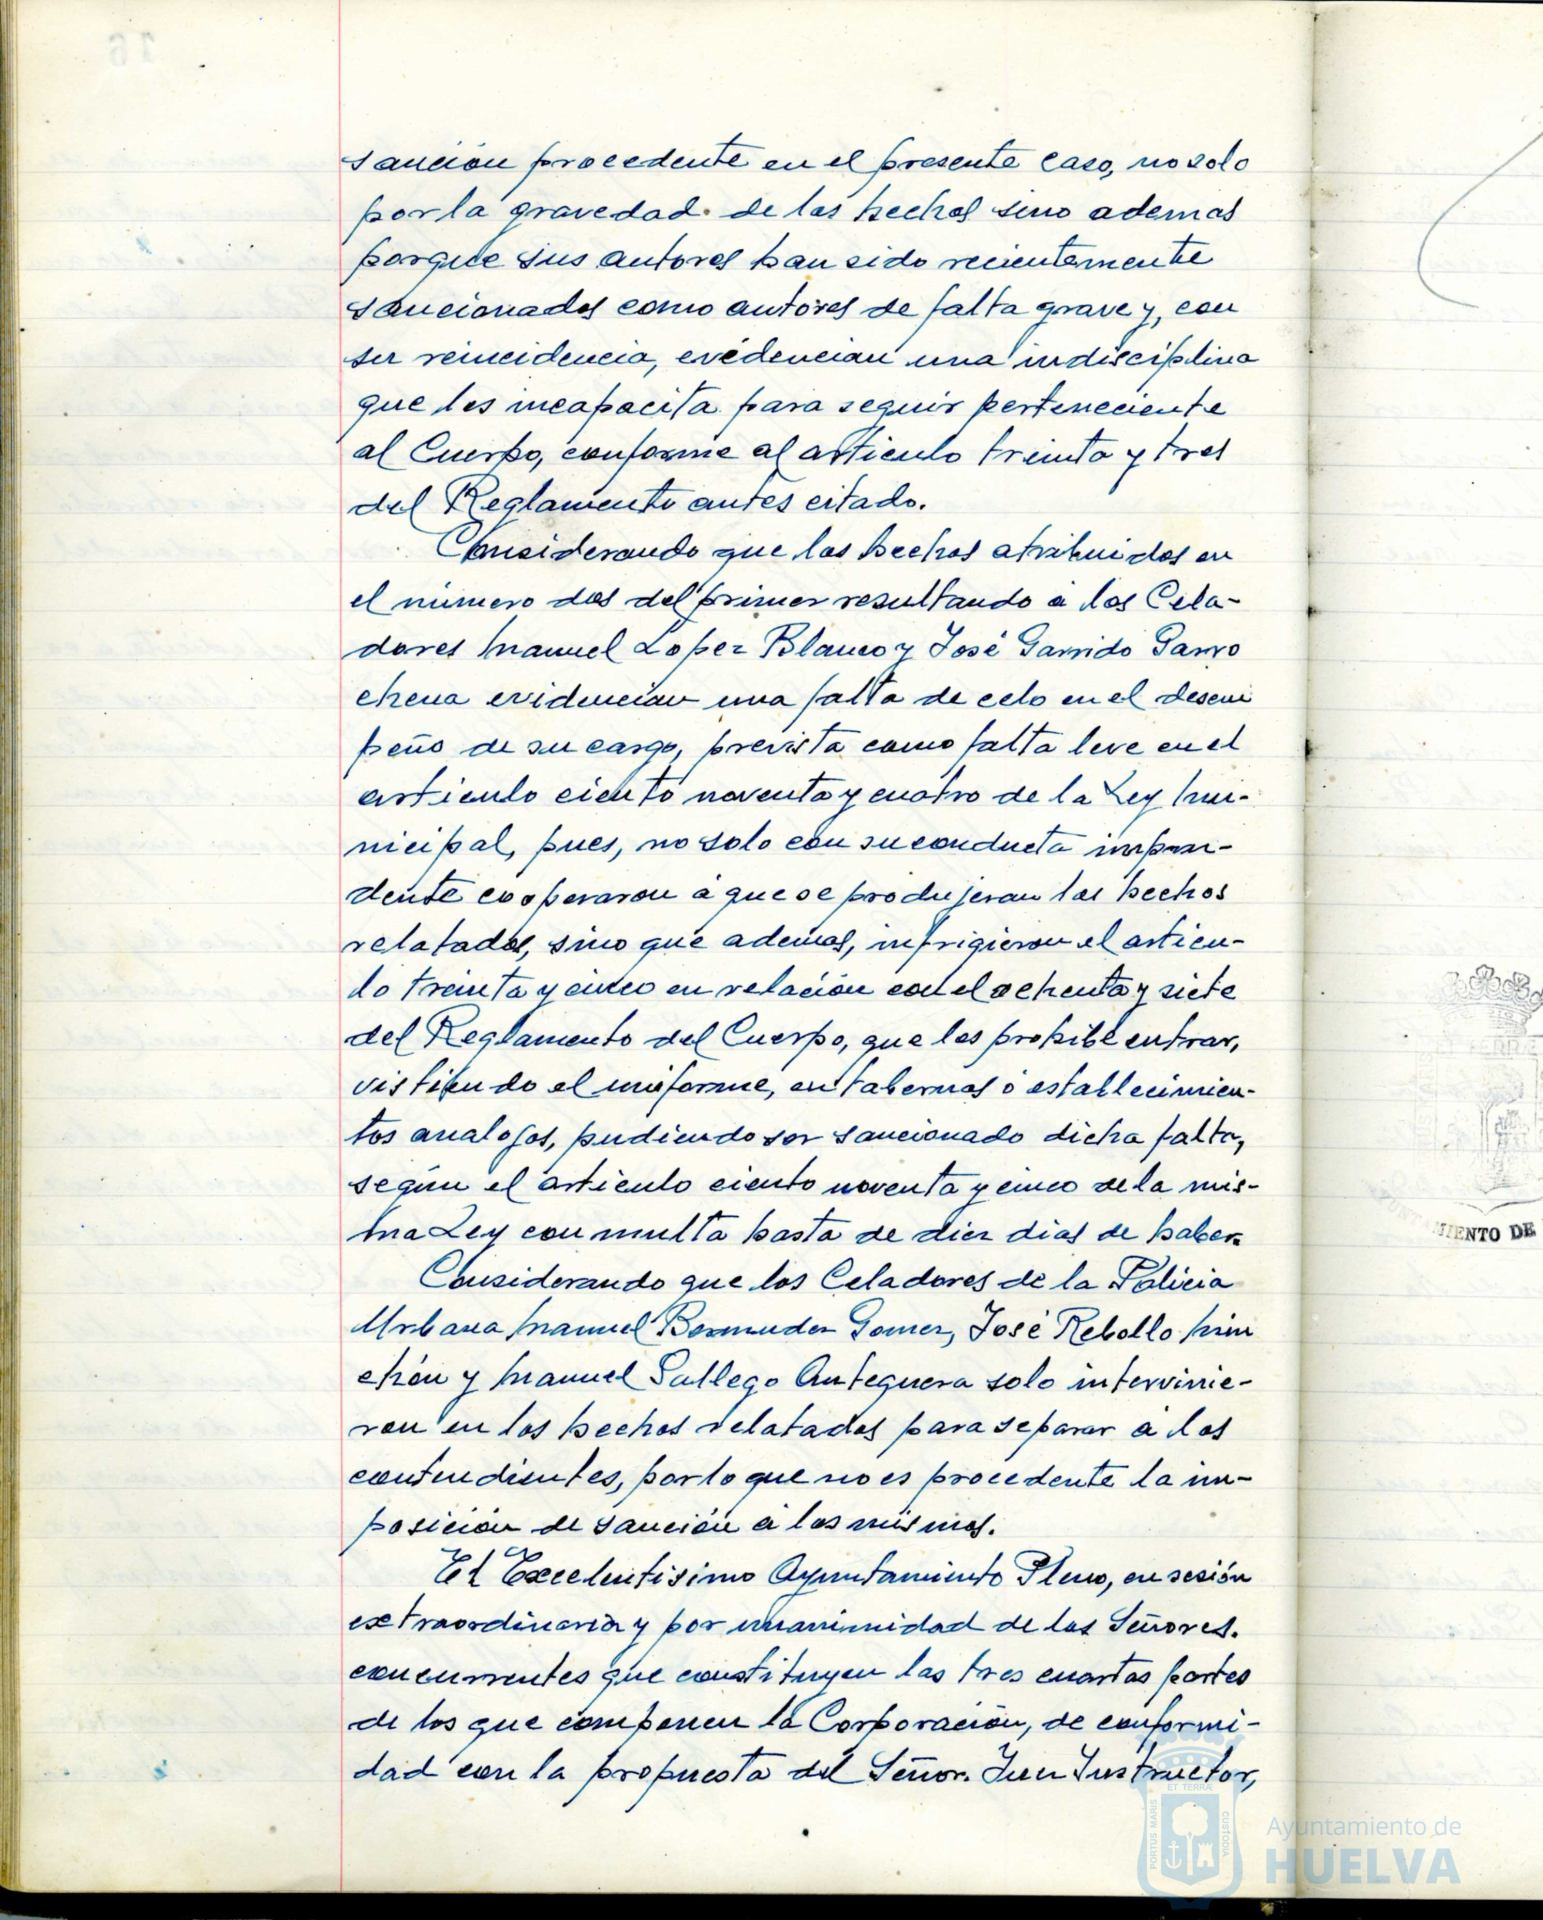 sanción procedente en el presente caso, no solo
por la gravedad de los hechos sino ademas
porque sus autores han sido recientemente
sancionados como autores de falta grave y, con
su reincidencia, evidencian una indisciplina
que les incapacita para seguir perteneciente
al Cuerpo, conforme al articulo treinta y tres
del Reglamento antes citado.
Considerando que los hechos atribuidos en
el número dos del primer resultando á los Cela-
dores Manuel Lopez Blanco y José Garrido Garro
chena evidencian una falta de celo en el desem
peño de su cargo, prevista como falta leve en el
articulo ciento noventa y cuatro de la Ley Mu-
nicipal, pues, no solo con su conducta impru-
dente cooperaron á que se produjeran los hechos
relatados, sino que ademas, infrigieron el articu-
lo treinta y cinco en relación con el ochenta y siete
del Reglamento del Cuerpo, que les prohibe entrar,
vistiendo el uniforme, en tabernas ó establecimien-
tos analogos, pudiendo ser sancionado dicha falta,
según el articulo ciento noventa y cinco de la mis-
ma Ley con multa hasta de diez dias de haber.
Considerando que los Celadores de la Policia
Urbana Manuel Bermudez Gomez, José Rebollo Min
chón y Manuel Gallego Antequera solo intervinie-
ron en los hechos relatados para separar á los
contendientes, por lo que no es procedente la im-
posición de sanción á los mismos.
El Excelentisimo Ayuntamiento Pleno, en sesión
extraordinaria y por unanimidad de los Señores.
concurrentes que constituyen las tres cuartas partes
de los que componen la Corporación, de conformi-
dad con la propuesta del Señor. Juez Instructor,
MIENTO DE
PORTUS MARIS
ET TERRA
CUSTODIA
Ayuntamiento de
HUELVA